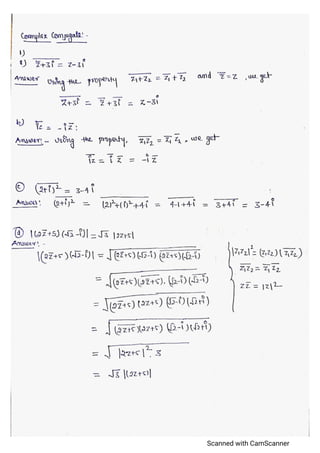 Complex Conjugate:-
1)
a) \overline{\overline{z}+3i} = z-3i
Answer Using the property \overline{z_1+z_2} = \overline{z_1} + \overline{z_2} and \overline{\overline{z}} = z, we get
\overline{\overline{z}+3i} = \overline{\overline{z}} + \overline{3i} = z-3i
b) \overline{iz} = -i\overline{z}:
Answer:- Using the property, \overline{z_1z_2} = \overline{z_1} \overline{z_2}, we get
\overline{iz} = \overline{i} \overline{z} = -i\overline{z}
c) \overline{(2+i)^2} = 3-4i
Answer: \overline{(2+i)^2} = \overline{(2)^2+(i)^2+4i} = \overline{4-1+4i} = \overline{3+4i} = 3-4i
d) |(2\overline{z}+5)(√2-i)| = √3 |2z+5|
Answer:-
|(2\overline{z}+5)(√2-i)| = √((2\overline{z}+5)(√2-i) \overline{(2\overline{z}+5)(√2-i)}) |z_1z_2|^2 = (z_1z_2)(\overline{z_1z_2})
= √((2\overline{z}+5)\overline{(2\overline{z}+5)}. (√2-i)\overline{(√2-i)}) \overline{z_1z_2} = \overline{z_1} \overline{z_2}
= √((2\overline{z}+5)(2z+5) (√2-i)(√2+i)) z\overline{z} = |z|^2
= √(\overline{(2z+5)}(2z+5) (√2-i)(√2+i))
= √(|2z+5|^2. 3)
= √3 |(2z+5)|
Scanned with CamScanner